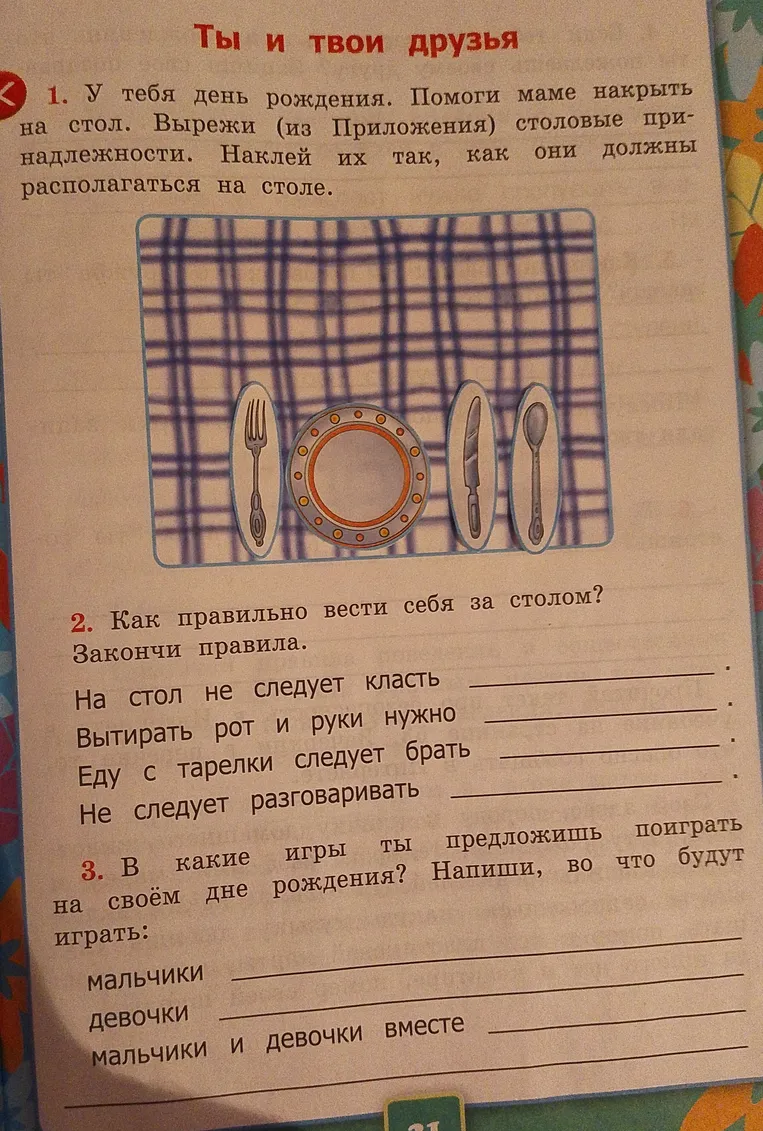 Ты и твои друзья
1. У тебя день рождения. Помоги маме накрыть
на стол. Вырежи (из Приложения) столовые при-
надлежности. Наклей их так, как они должны
располагаться на столе.
2. Как правильно вести себя за столом?
Закончи правила.
На стол не следует класть ____________.
Вытирать рот и руки нужно ____________.
Еду с тарелки следует брать ____________.
Не следует разговаривать ____________.
3. В какие игры ты предложишь поиграть
на своём дне рождения? Напиши, во что будут
играть:
мальчики ____________
девочки ____________
мальчики и девочки вместе ____________